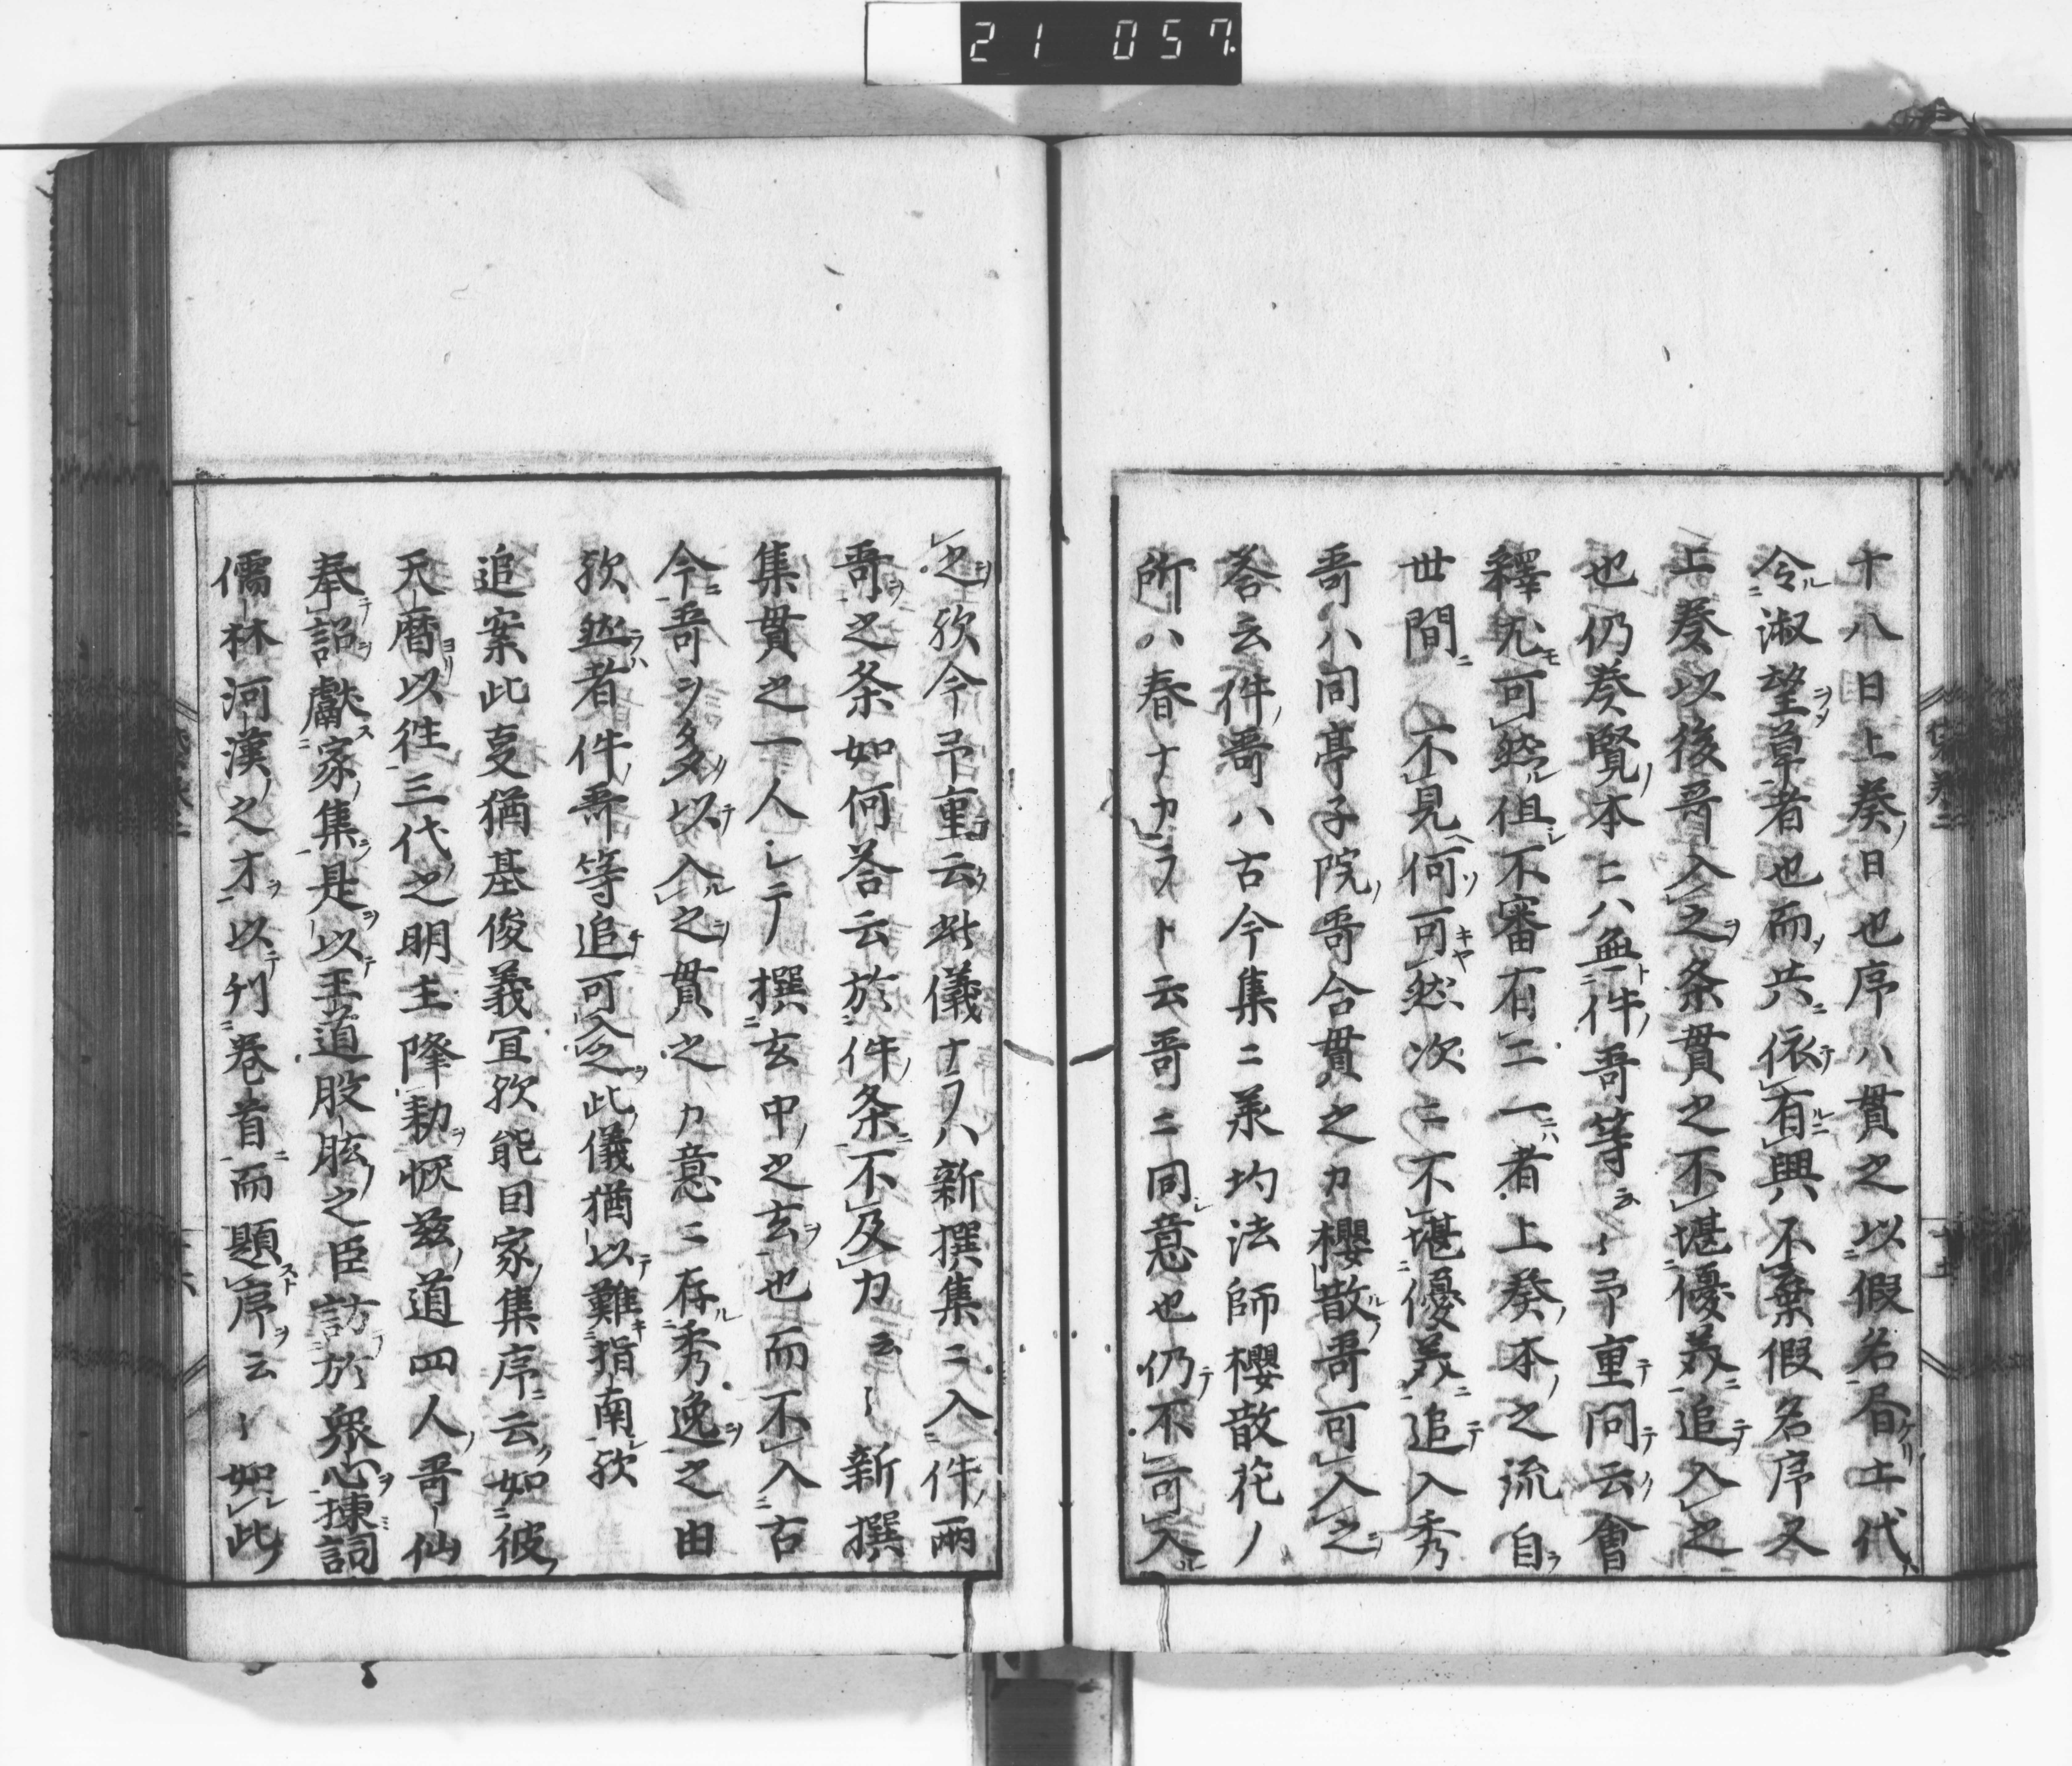 21 057
十八日上奏日也序ハ貫之以假名㞐土代
令淑望草者也而共依有興不棄假名序又
上奏以後哥入之条貫之不堪優美追入之
也仍奏覧本ニハ無件哥等云〻予重問云會
釋尤可然但不審有二一者上奏本之流自
世間不見何可然次ニ不堪優美追入秀
哥ハ同亭子院哥合貫之カ櫻散哥可入之
答云件哥ハ古今集ニ承均法師櫻散花ノ
所ハ春ナカラト云哥ニ同意也仍不可入
之欤今予重云此儀ナラハ新撰集ニ入件兩
哥之条如何答云於件条不及力云〻新撰
集貫之一人シテ撰玄中之玄也而不入古
今哥ヲ多以入之貫之カ意ニ存秀逸之由
欤然者件哥等追可入之此儀猶以難指南欤
追案此㕝猶基俊義冝欤能因家集序云如彼
天暦以徃三代之明主降勅恢兹道四人哥仙
奉詔獻家集是以王道股肱之臣訪於衆心揀詞
儒林河漢之才以刋巻首而題序云〻如此